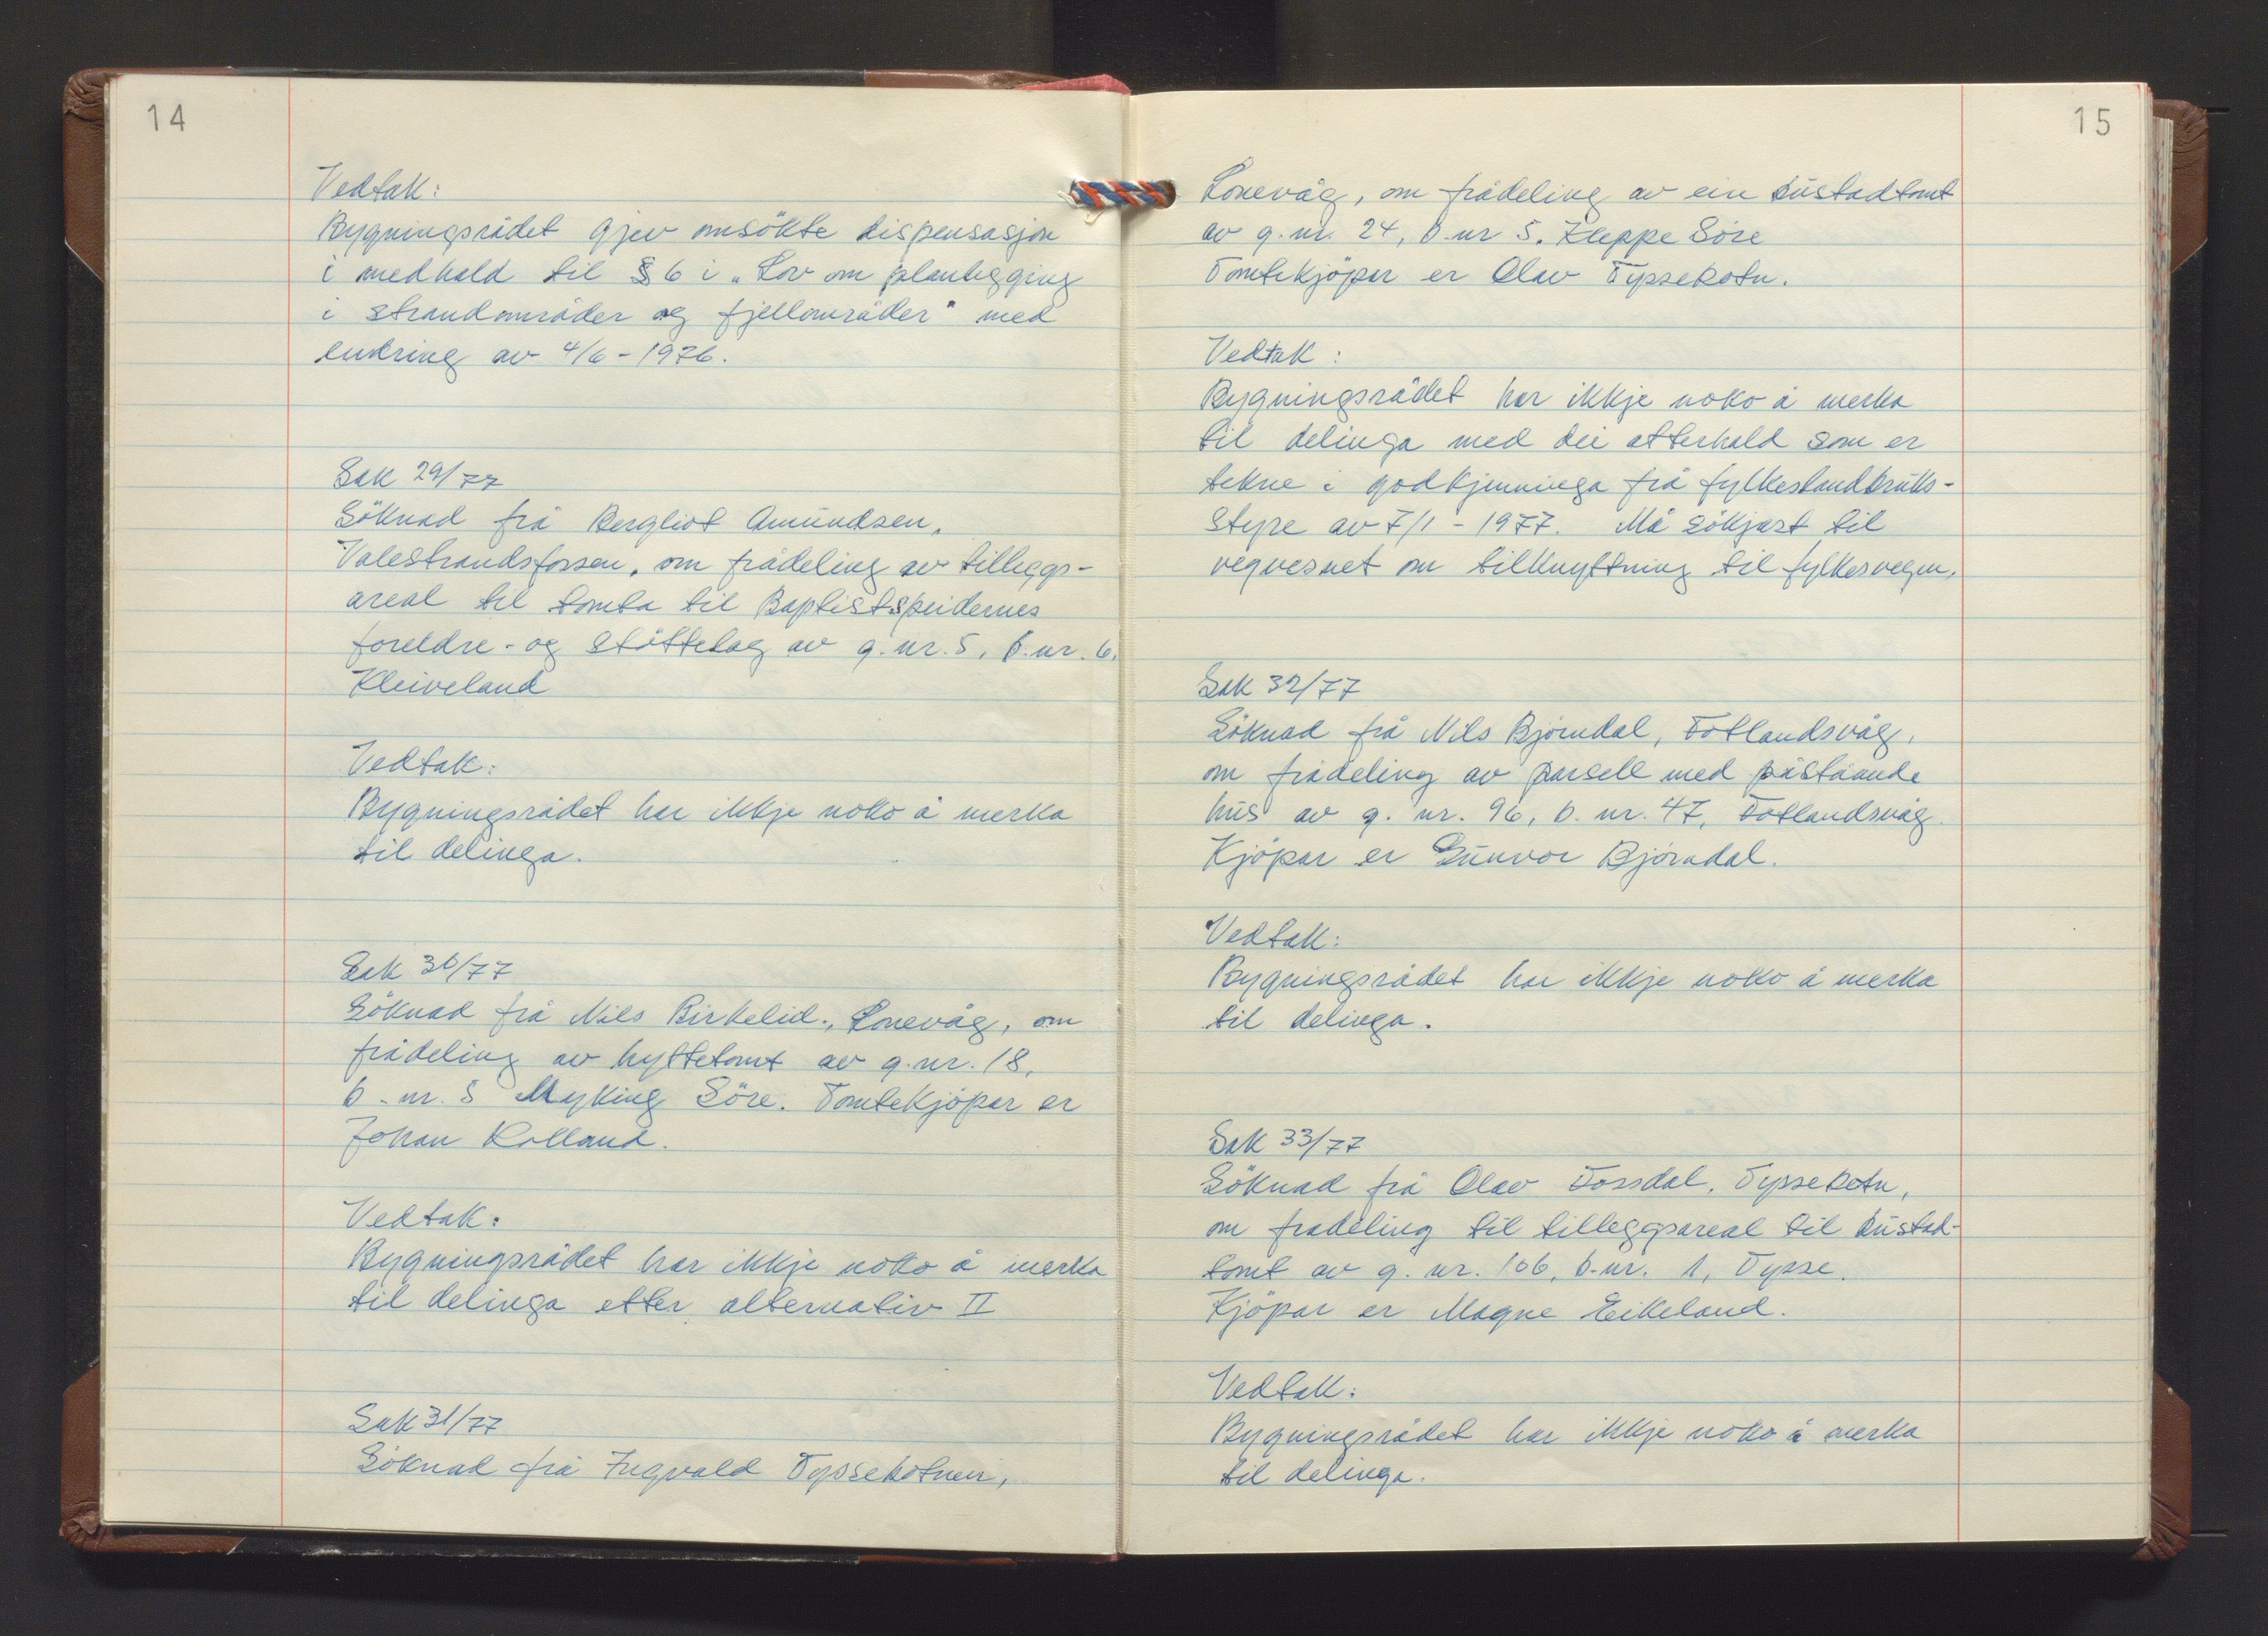 14
Vedtak:
Bygningsrådet gjev omsökte dispensasjon
i medhald til § 6 i "Lov om planlegging
i strandområder og fjellområder" med
endring av 4/6 - 1976.
Sak 29/77
Söknad frå Bergliot Amundsen,
Valestrandsfossen, om frådeling av tilleggs-
areal til tomta til Baptistspeidernes
foreldre- og stöttelag av g.nr. 5, b.nr. 6,
Kleiveland
Vedtak:
Bygningsrådet har ikkje noko å merka
til delinga.
Sak 30/77
Söknad frå Nils Birkelid, Lonevåg, om
frådeling av hyttetomt av g.nr. 18,
b.nr. 5 Myking Söre. Tomtekjöpar er
Johan Rolland.
Vedtak:
Bygningsrådet har ikkje noko å merka
til delinga etter alternativ II
Sak 31/77
Söknad frå Ingvald Tyssekotnen,
15
Lonevåg, om frådeling av ein bustadtomt
av g.nr. 24, b.nr 5. Kleppe Söre
Tomtekjöpar er Olav Tyssekotn.
Vedtak:
Bygningsrådet har ikkje noko å merka
til delinga med dei atterhald som er
tekne i godkjenninga frå fylkeslandbruks-
styre av 7/1 - 1977. Må sökjast til
vegvesnet om tilknyttning til fylkesvegen.
Sak 32/77
Söknad frå Nils Björndal, Fotlandsvåg,
om frådeling av parsell med påståande
hus av g.nr. 96, b.nr. 47, Fotlandsvåg.
Kjöpar er Gunvor Björndal.
Vedtak:
Bygningsrådet har ikkje noko å merka
til delinga.
Sak 33/77
Söknad frå Olav Fossdal, Tyssekotn,
om frådeling til tilleggsareal til bustad-
tomt av g.nr. 106, b.nr. 1, Tysse.
Kjöpar er Magne Eikeland.
Vedtak:
Bygningsrådet har ikkje noko å merka
til delinga.